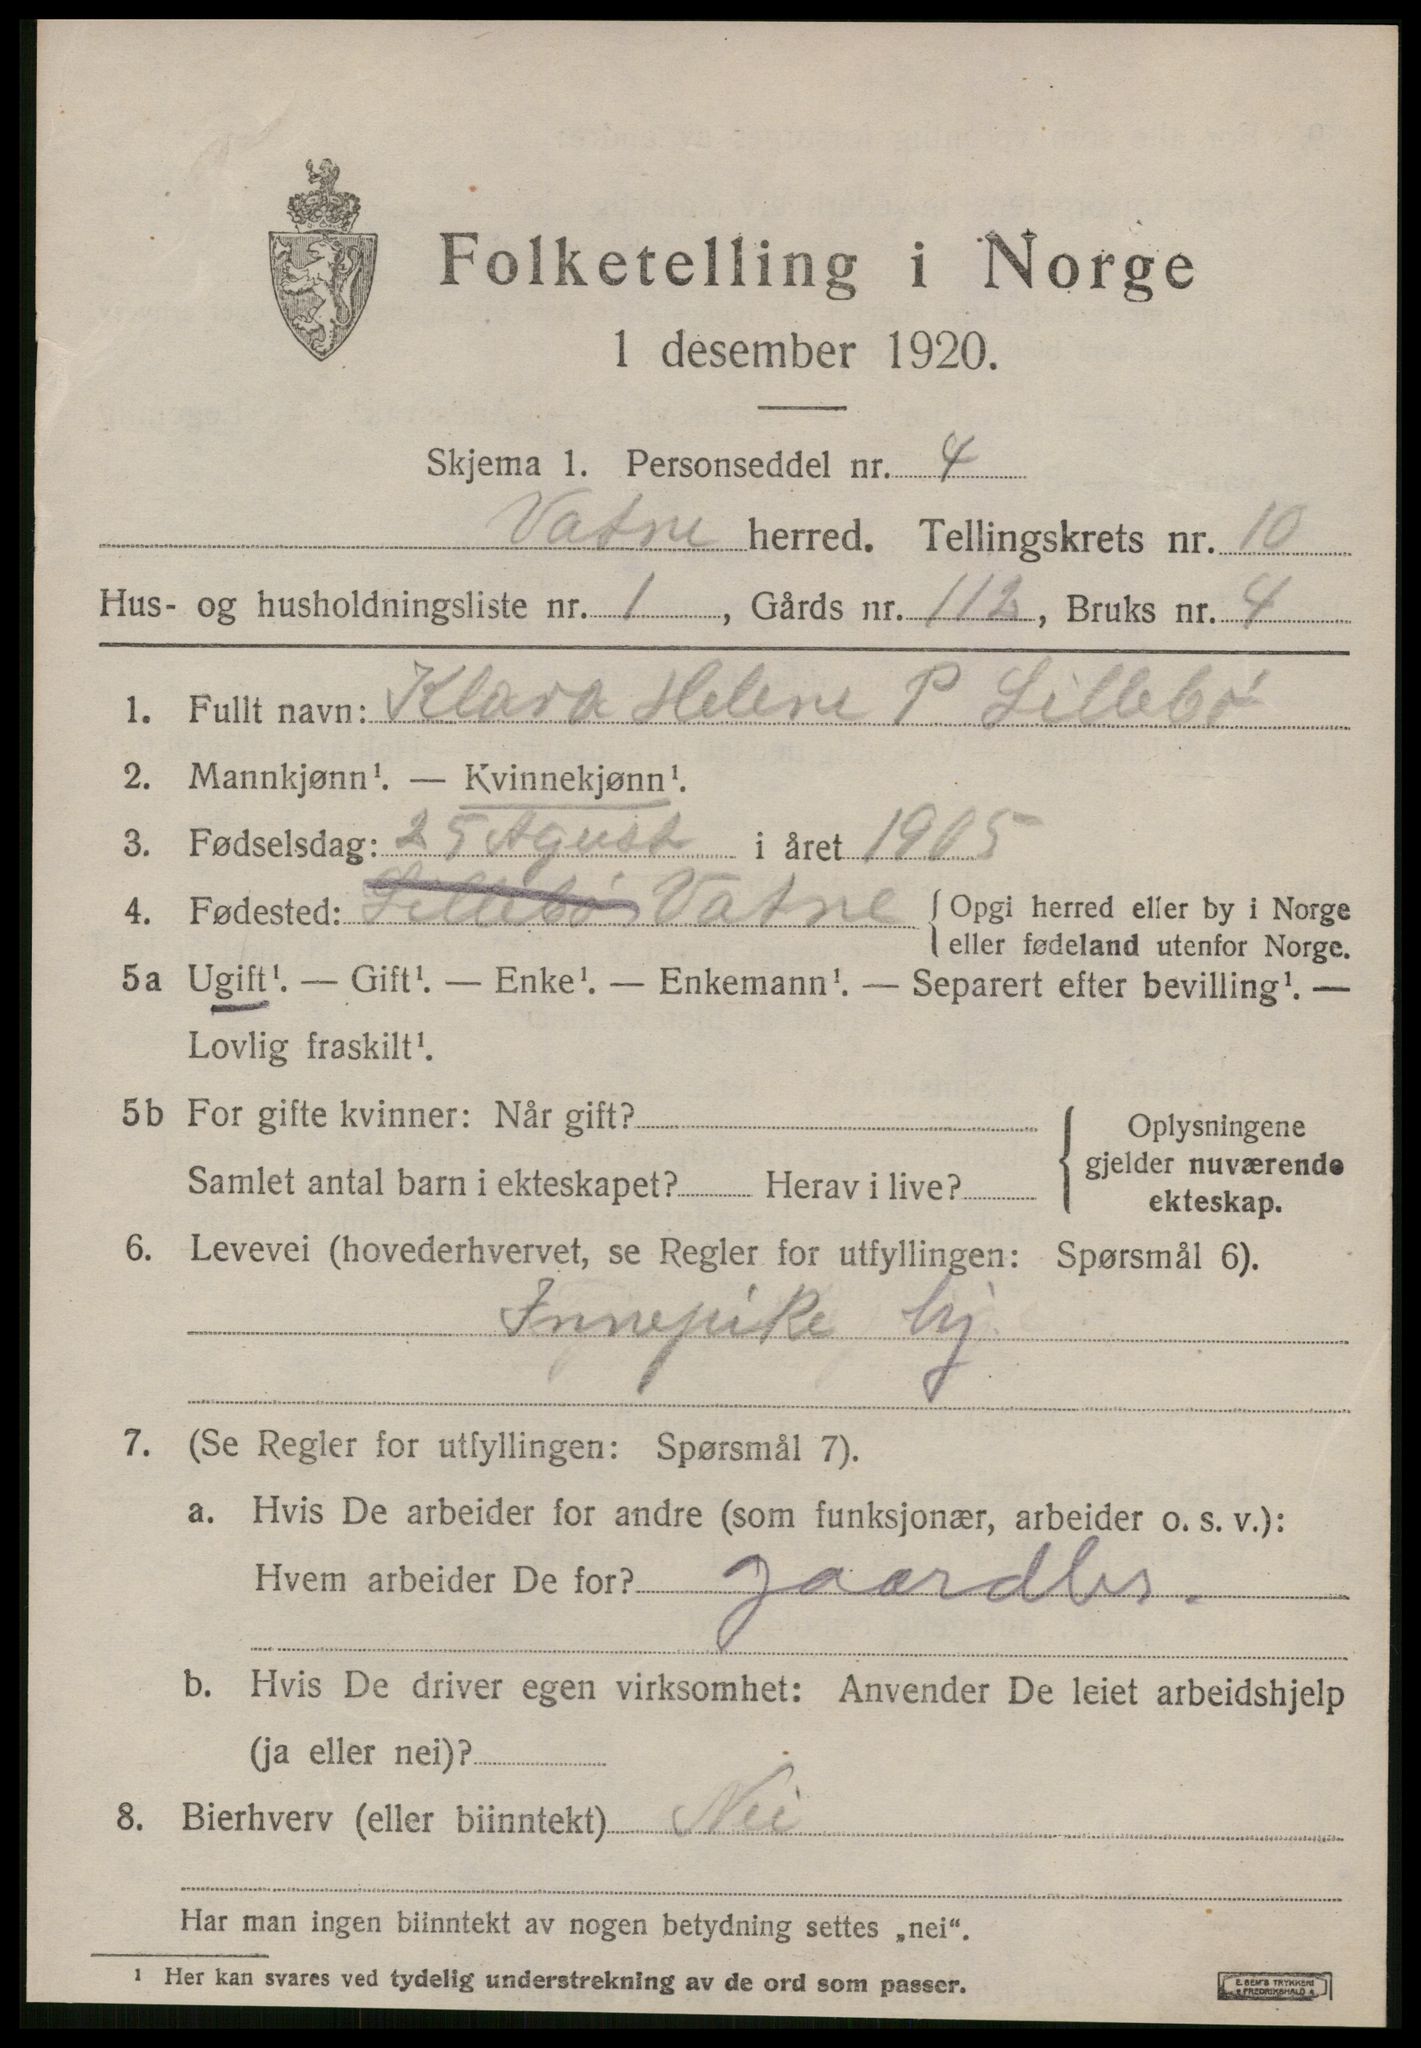 Folketelling i Norge
1 desember 1920.
Skjema 1. Personseddel nr. 4
Vatne herred. Tellingskrets nr. 10
Hus- og husholdningsliste nr. 1, Gårds nr. 112, Bruks nr. 4
1. Fullt navn: Klara Helene P Lillebø
2. Mannkjønn¹. — Kvinnekjønn¹.
3. Fødselsdag: 25 Agust i året 1905
4. Fødested: Lillebø Vatne { Opgi herred eller by i Norge
eller fødeland utenfor Norge.
5a Ugift¹. — Gift¹. — Enke¹. — Enkemann¹. — Separert efter bevilling¹. —
Lovlig fraskilt¹.
5b For gifte kvinner: Når gift?
Samlet antal barn i ekteskapet? Herav i live?
{ Oplysningene
gjelder nuværende
ekteskap.
6. Levevei (hovederhvervet, se Regler for utfyllingen: Spørsmål 6).
Innepike hj
7. (Se Regler for utfyllingen: Spørsmål 7).
a. Hvis De arbeider for andre (som funksjonær, arbeider o. s. v.):
Hvem arbeider De for? gaardbr.
b. Hvis De driver egen virksomhet: Anvender De leiet arbeidshjelp
(ja eller nei)?
8. Bierhverv (eller biinntekt) Nei
Har man ingen biinntekt av nogen betydning settes „nei“.
¹ Her kan svares ved tydelig understrekning av de ord som passer.
E. SEM'S TRYKKERI
FREDRIKSHALD